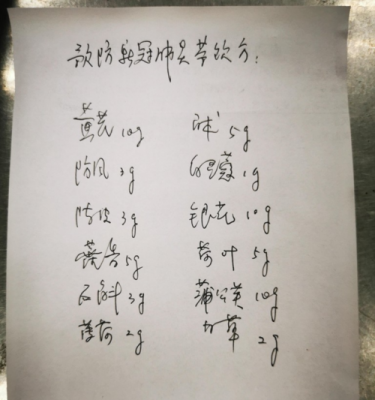 预防新冠肺炎茶饮方:
黄芪 10g 白术 5g
防风 3g 白豆蔻 1g
陈皮 3g 银花 10g
藿香 5g 荷叶 5g
石斛 3g 蒲公英 10g
薄荷 2g 甘草 2g